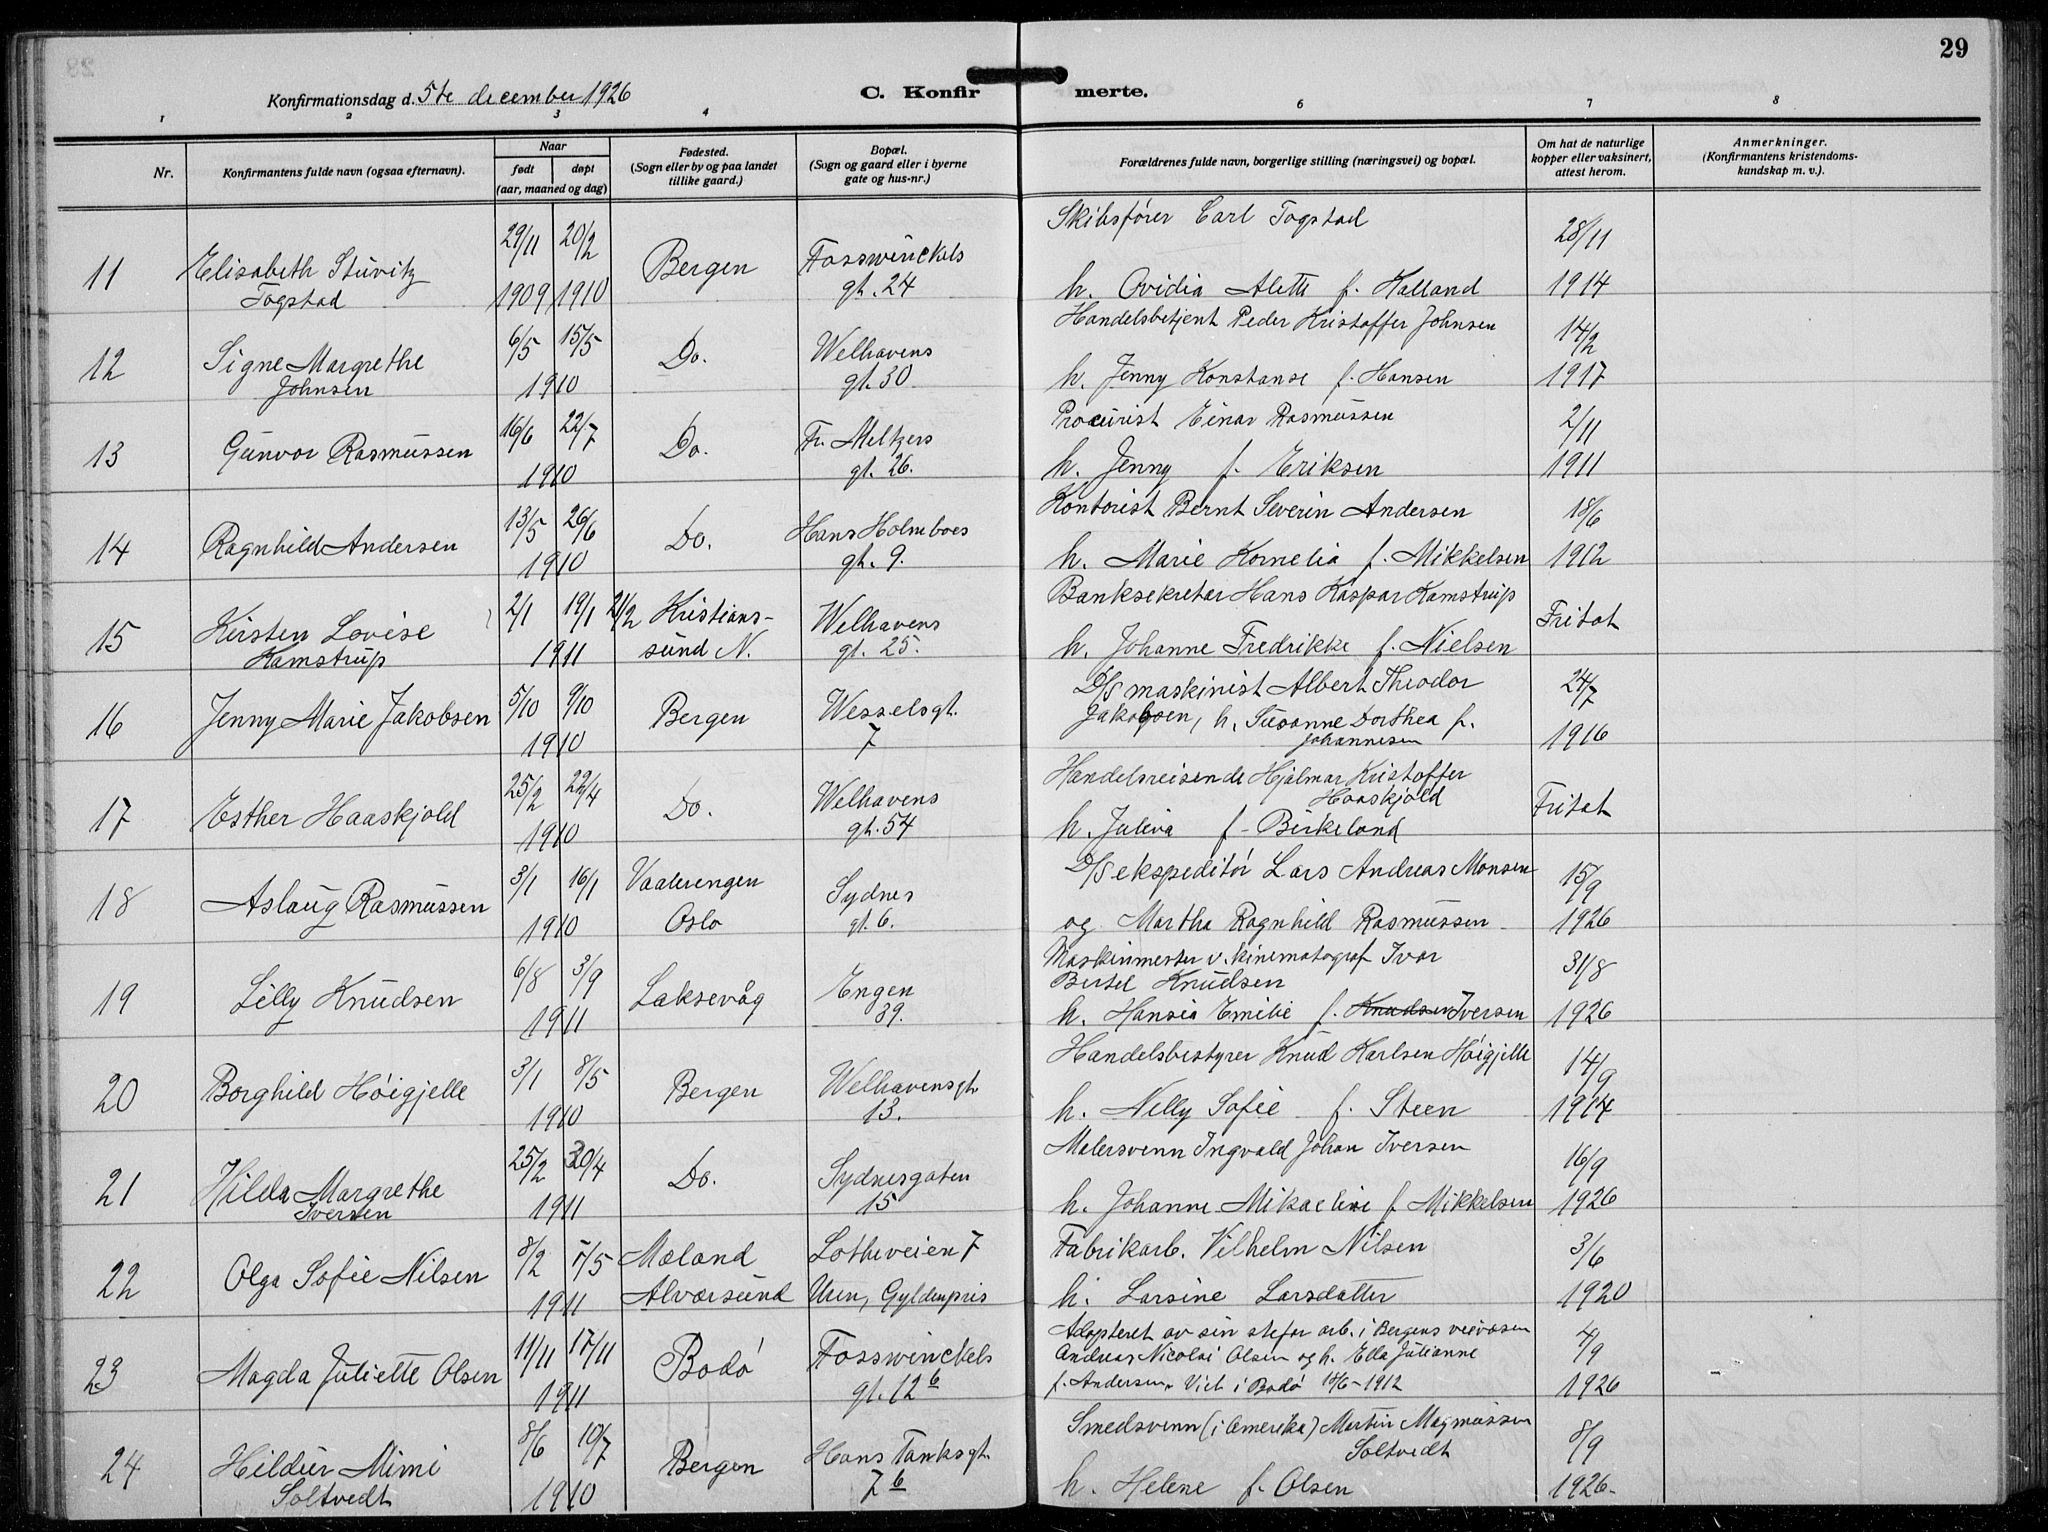 29
Konfirmationsdag d. 5te december 1926
C. Konfirmerte.
1 2 3 4 6 7 8
Nr.
Konfirmantens fulde navn (ogsaa efternavn).
Naar
født døpt
(aar, maaned og dag)
Fødested.
(Sogn eller by og paa landet
tillike gaard.)
Bopæl.
(Sogn og gaard eller i byerne
gate og hus-nr.)
Forældrenes fulde navn, borgerlige stilling (næringsvei) og bopæl.
Om hat de naturlige
kopper eller vaksinert,
attest herom.
Anmerkninger.
(Konfirmantens kristendoms-
kundskap m. v.).
29/11 20/2 Skibsfører Carl Togstad 28/11
11 Elisabeth Stüvitz Bergen Fosswinckels
Togstad 1909 1910 gt. 24 h. Ovidia Alette f. Halland 1914
6/5 15/5 Handelsbetjent Peder Kristoffer Johnsen 14/2
12 Signe Margrethe Do. Welhavens
Johnsen 1910 gt. 30 h. Jenny Konstanse f. Hansen 1917
16/6 22/7 Procurist Einar Rasmussen 2/11
13 Gunvor Rasmussen Do. Fr. Meltzers
1910 gt. 26. h. Jenny f. Eriksen 1911
13/5 26/6 Kontorist Bernt Severin Andersen 18/6
14 Ragnhild Andersen Do. Hans Holmboes
1910 gt. 9. h. Marie Kornelia f. Mikkelsen 1912
2/1 19/1 21/2 Kristians- Banksekretær Hans Kaspar Kamstrup
15 Kirsten Lovise Welhavens Fritat
Kamstrup 1911 sund N. gt. 25. h. Johanne Fredrikke f. Nielsen
5/10 9/10 D/S maskinist Albert Theodor 24/7
16 Jenny Marie Jakobsen Bergen Wesselsgt. Jakobsen, h. Susanne Dorthea f.
1910 7 Johannesen 1916
25/2 22/4 Handelsreisende Hjalmar Kristoffer
17 Esther Haaskjold Do. Welhavens Haaskjold Fritat
1910 gt. 54 h. Juliva f. Birkeland
3/1 16/1 Vaalerengen D/S ekspeditør Lars Andreas Monsen 15/9
18 Aslaug Rasmussen Sydnes
1910 Oslo gt. 6. og Martha Ragnhild Rasmussen 1926
6/8 3/9 Maskinmester v. kinematograf Ivar 31/8
19 Lilly Knudsen Laksevåg Engen Bertel Knudsen
1911 39. h. Hansia Emilie f. Knudsen Iversen 1926
3/1 8/5 Handelsbestyrer Knud Karlsen Høigjelle 14/9
20 Borghild Høigjelle Bergen Welhavensgt.
1910 13. h. Nelly Sofie f. Steen 1914
25/2 30/4 Malersvenn Ingvald Johan Iversen 16/9
21 Hilda Margrethe Do. Sydnesgaten
Iversen 1911 15 h. Johanne Mikaeline f. Mikkelsen 1926
8/2 7/5 Mæland Lotheveien 7 Fabrikarb. Vilhelm Nilsen 3/6
22 Olga Sofie Nilsen
1911 Alværsund Uren, Gyldenpris h. Larsine Larsdatter 1920
11/11 17/11 Adopteret av sin stefar arb. i Bergens veivæsen 4/9
23 Magda Juliette Olsen Bodø Fosswinckels Andreas Nicolai Olsen og h. Ella Julianne
1911 gt. 12 b f. Andersen. Viet i Bodø 18/6-1912 1926
8/6 10/7 Smedsvenn (i Amerika) Martin Magnussen 8/9
24 Hildur Mimi Bergen Hans Tanksgt. Soltvedt
Soltvedt 1910 7 b h. Helene f. Olsen 1926.